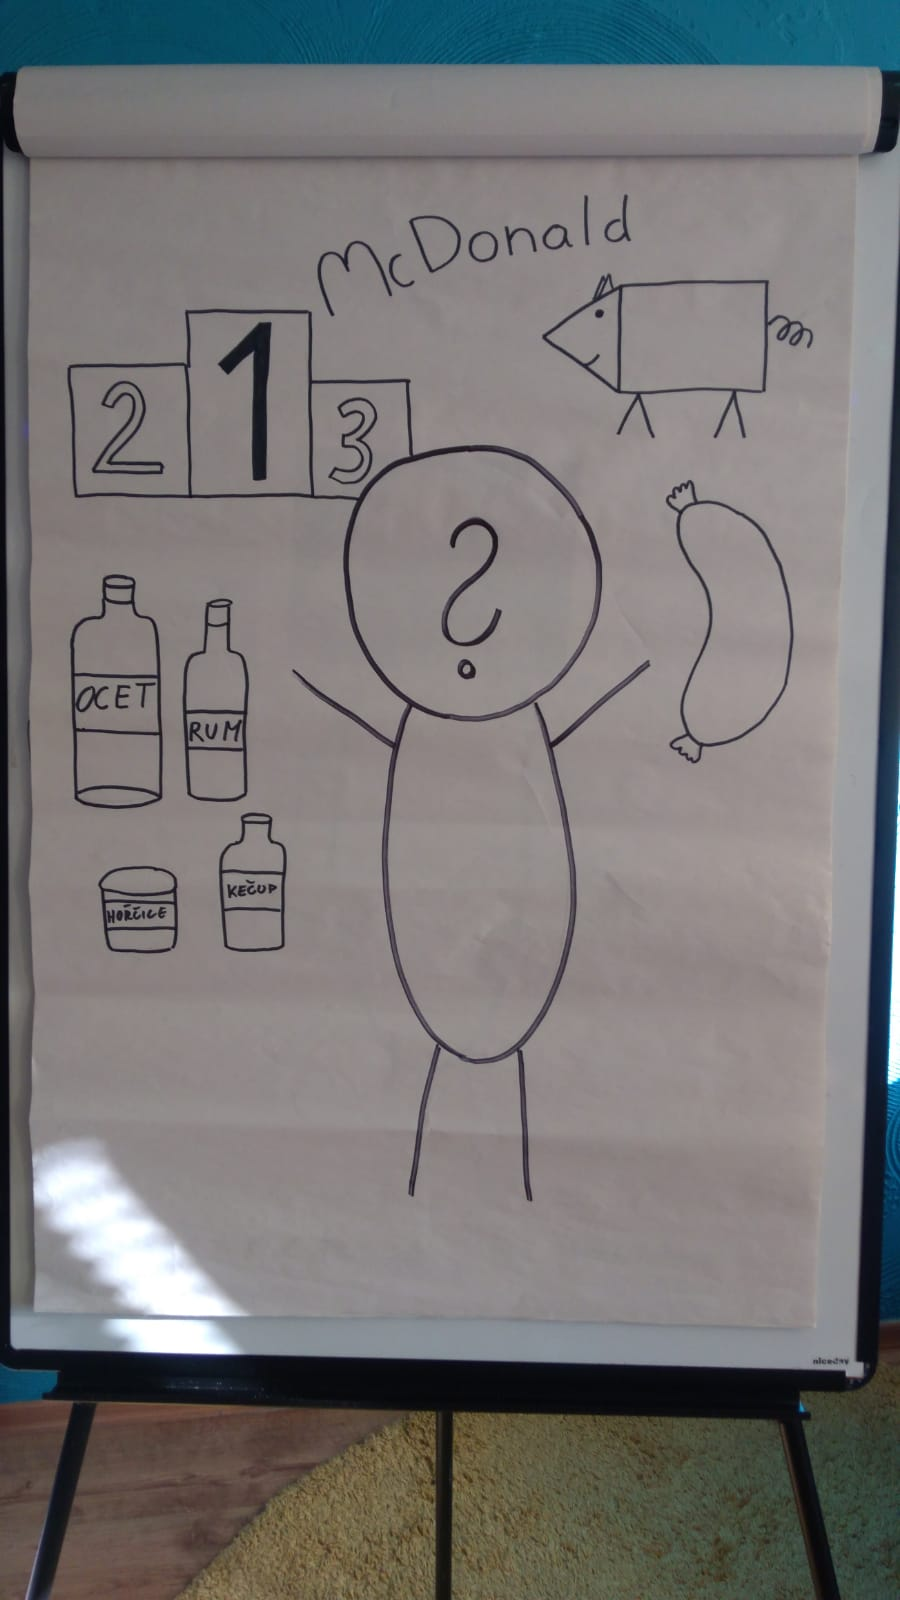 McDonald
2 1 3
?
OCET
RUM
HOŘČICE
KEČUP
niceday